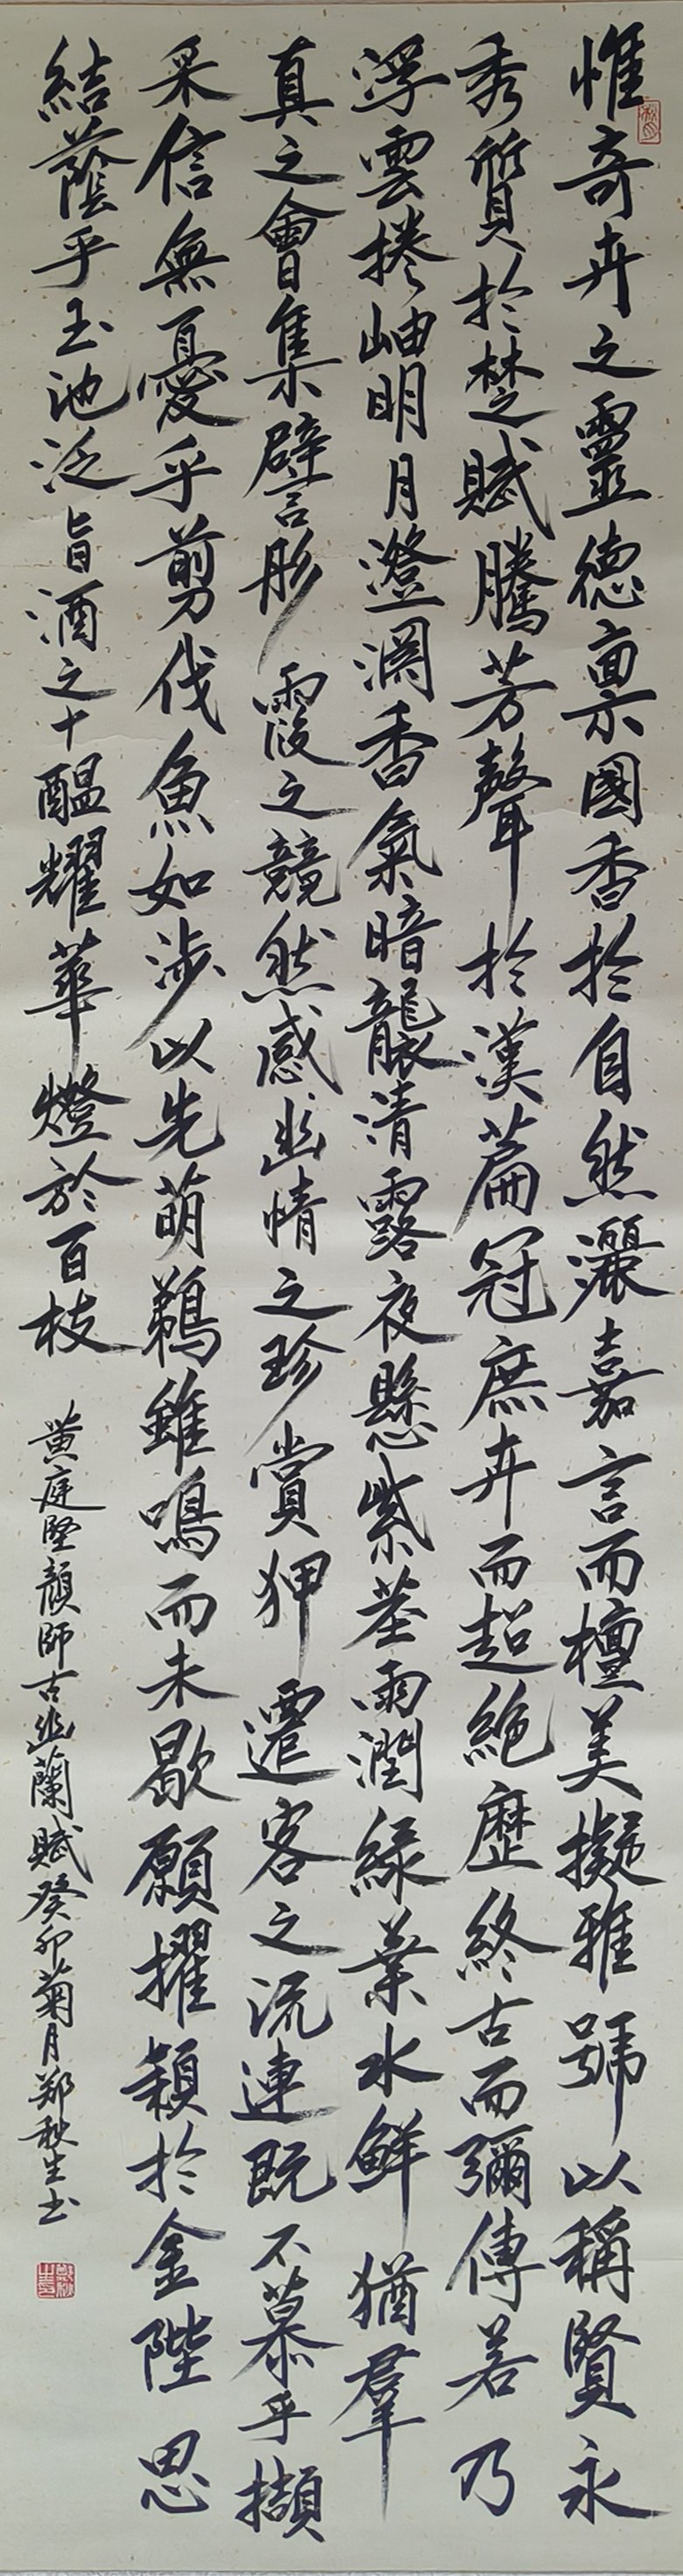 惟奇卉之靈德禀國香於自然灑嘉言而檀美擬雅號以稱賢永
秀質於楚賦騰芳聲於漢篇冠庶卉而超絶歷終古而彌傳若乃
浮雲捲岫明月澄洞香氣暗襲清露夜懸紫莖雨潤緑葉水鮮猶羣
真之會集譬言彤霞之競然感幽情之珍賞狎遷客之流連既不慕乎擷
采信無憂乎剪伐魚如涉以先萌鵜雖鳴而未歇願擢穎於金陛思
結蔭乎玉池泛旨酒之十醖耀華燈於百枝
黄庭堅顔師古幽蘭賦癸卯菊月郑秋生书